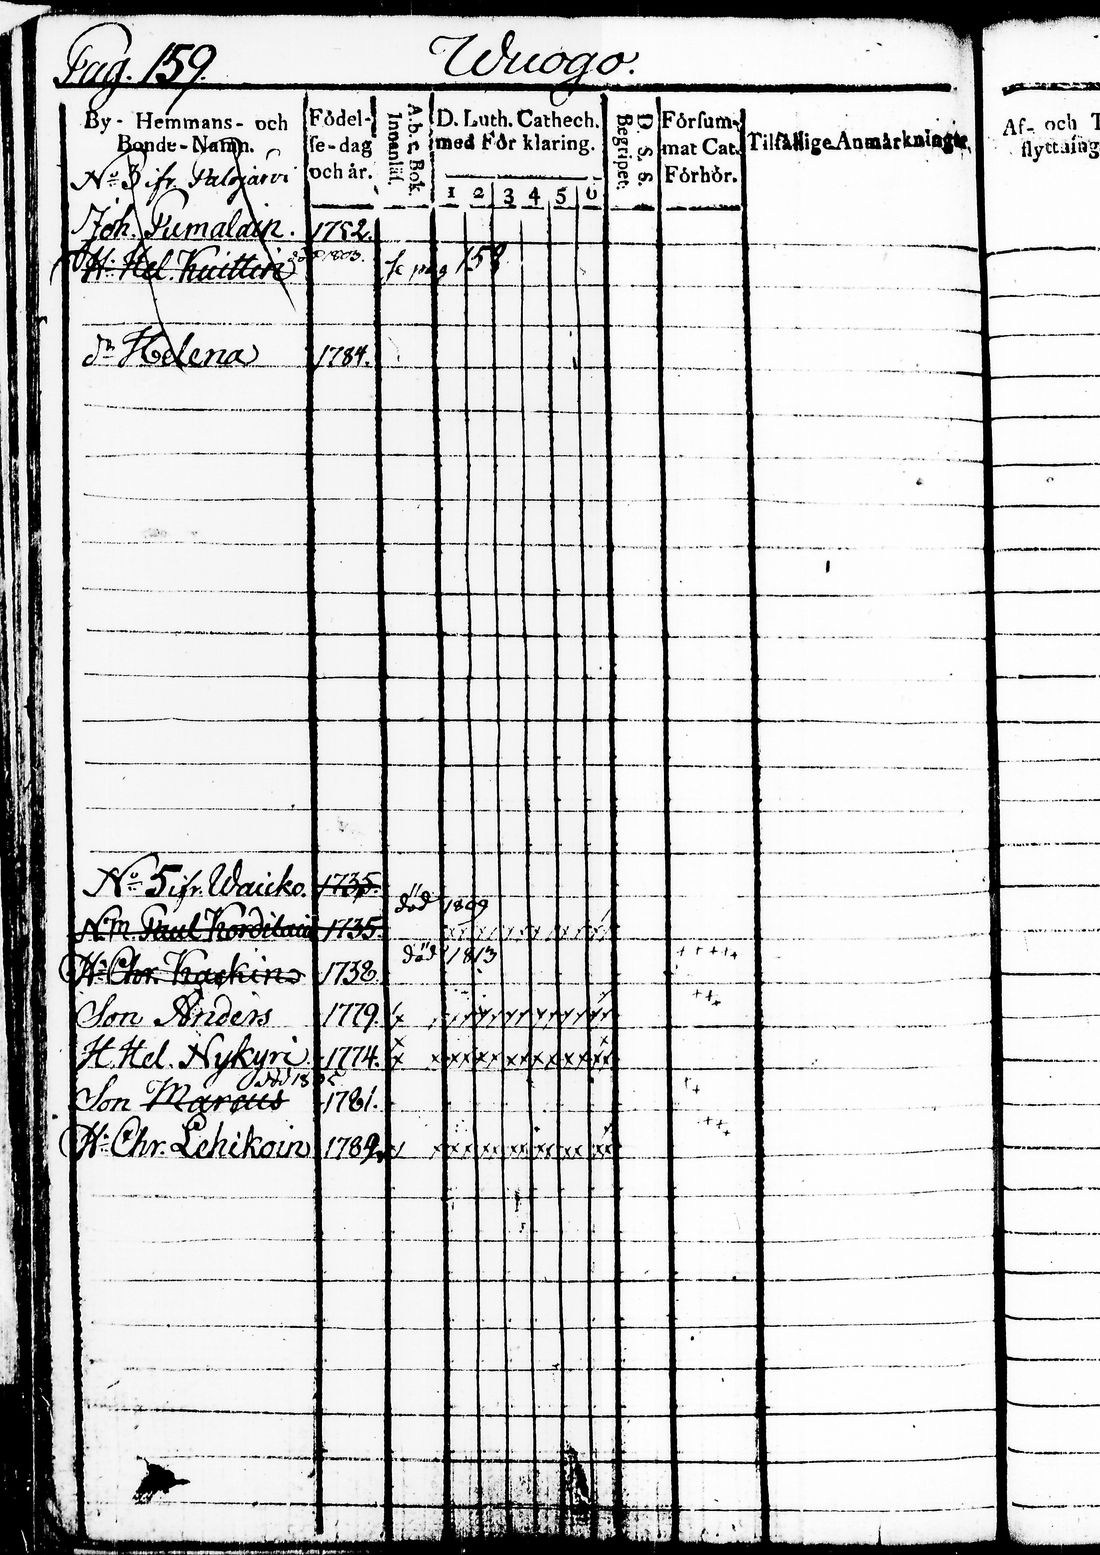 Pag. 159. Wuogo.
By- Hemmans- och Bonde-Namn.
Födel-se-dag och år.
A.b.c. Bok Innanläs.
D. Luth. Cathech. med För klaring.
1 2 3 4 5 6
D. S. S. Begripet.
Försum-mat Cat. Förhör.
Tilfällige Anmärkningar
Af- och T
flyttning
No 3 ifr. Palojärvi
Joh. Pumalain. 1752.
H: Hel. Kuittin död 1803. se pag 158
dr Helena 1784.
No 5 ifr. Waicko. 1735.
död 1809
N.m. Paul Kordilain 1735.
död 1813
H: Chr. Kaskin 1738
Son Anders 1779.
H. Hel. Nykyri 1774.
död 18
Son Marcus 1781.
H: Chr. Lehikoin 1789